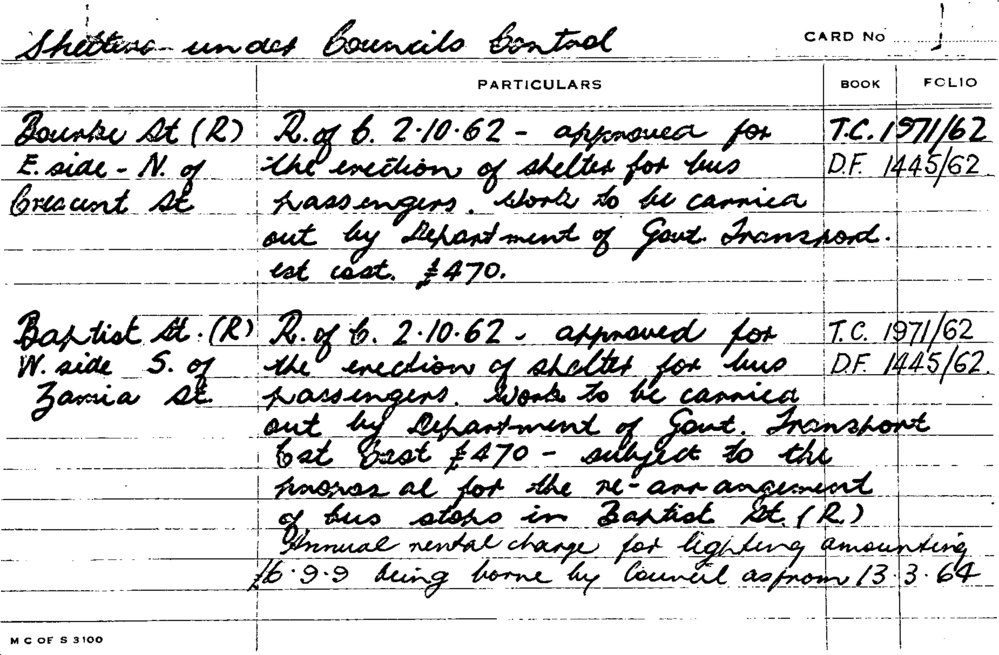 Shelters under Councils Control CARD No 1
PARTICULARS BOOK FOLIO
Bourke St (R) R. of C. 2.10.62 - approved for T.C. 1971/62
E. side - N. of the erection of shelter for bus D.F. 1445/62
Crescent St passengers. Work to be carried
out by Department of Govt. Transport.
est cost. £470.
Baptist St. (R) R. of C. 2.10.62 - approved for T.C. 1971/62
W. side S. of the erection of shelter for bus D.F. 1445/62.
Zamia St. passengers. Work to be carried
out by Department of Govt. Transport
Est Cost £470 - subject to the
proposal for the re-arrangement
of bus stops in Baptist St. (R.)
Annual rental charge for lighting amounting
£6.9.9 being borne by Council as from 13.3.64
M C OF S 3100